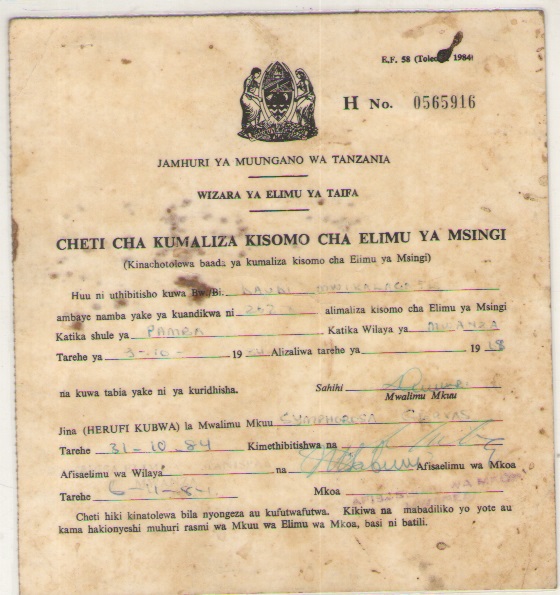 E.F. 58 1984)
H No. 0565916
JAMHURI YA MUUNGANO WA TANZANIA
WIZARA YA ELIMU YA TAIFA
CHETI CHA KUMALIZA KISOMO CHA ELIMU YA MSINGI
(Kinachotolewa baada ya kumaliza kisomo cha Elimu ya Msingi)
Huu ni uthibitisho kuwa Bw./Bi.
ambaye namba yake ya kuandikwa ni alimaliza kisomo cha Elimu ya Msingi
Katika shule ya PAMBA Katika Wilaya ya MWANZA
Tarehe ya 3-10- 19 Alizaliwa tarehe ya 19
na kuwa tabia yake ni ya kuridhisha. Sahihi
Mwalimu Mkuu
Jina (HERUFI KUBWA) la Mwalimu Mkuu SYMPHOROSA
Tarehe 31-10-84 Kimethibitishwa na
Afisaelimu wa Wilaya na Afisaelimu wa Mkoa
Tarehe 6-11-84 Mkoa
Cheti hiki kinatolewa bila nyongeza au kufutwafutwa. Kikiwa na mabadiliko yo yote au
kama hakionyeshi muhuri rasmi wa Mkuu wa Elimu wa Mkoa, basi ni batili.